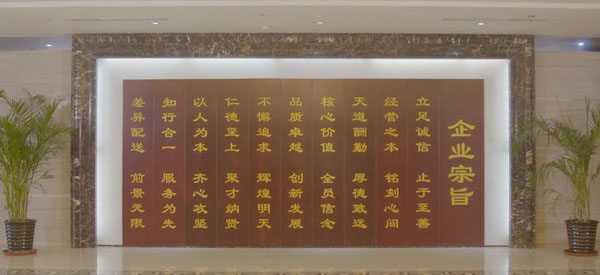 企业宗旨
立足诚信 止于至善
经营之本 铭刻心间
天道酬勤 厚德致远
核心价值 全员信念
品质卓越 创新发展
不懈追求 辉煌明天
仁德至上 聚才纳贤
以人为本 齐心攻坚
知行合一 服务为先
差异配送 前景无限